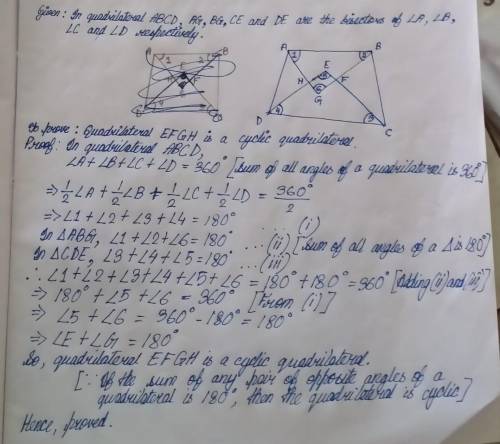 Given: In quadrilateral ABCD, AG, BG, CE and DE are the bisectors of ∠A, ∠B,
∠C and ∠D respectively.
A 1 2 B
E
F
4
A 1 2 B
E
H 5 F
6
G
D 4 3 C
To prove: Quadrilateral EFGH is a cyclic quadrilateral.
Proof: In quadrilateral ABCD,
∠A+∠B+∠C+∠D = 360° [Sum of all angles of a quadrilateral is 360°]
⇒ 1/2∠A + 1/2∠B + 1/2∠C + 1/2∠D = 360°/2
⇒ ∠1+∠2+∠3+∠4 = 180° ...(i)
In ΔABG, ∠1+∠2+∠6 = 180° ...(ii) [Sum of all angles of a Δ is 180°]
In ΔCDE, ∠3+∠4+∠5 = 180° ...(iii)
∴ ∠1+∠2+∠3+∠4+∠5+∠6 = 180°+180° = 360° [Adding (ii) and (iii)]
⇒ 180°+∠5+∠6 = 360° [From (i)]
⇒ ∠5+∠6 = 360°-180° = 180°
⇒ ∠E+∠G = 180°
So, quadrilateral EFGH is a cyclic quadrilateral.
[∵ If the sum of any pair of opposite angles of a
quadrilateral is 180°, then the quadrilateral is cyclic]
Hence, proved.